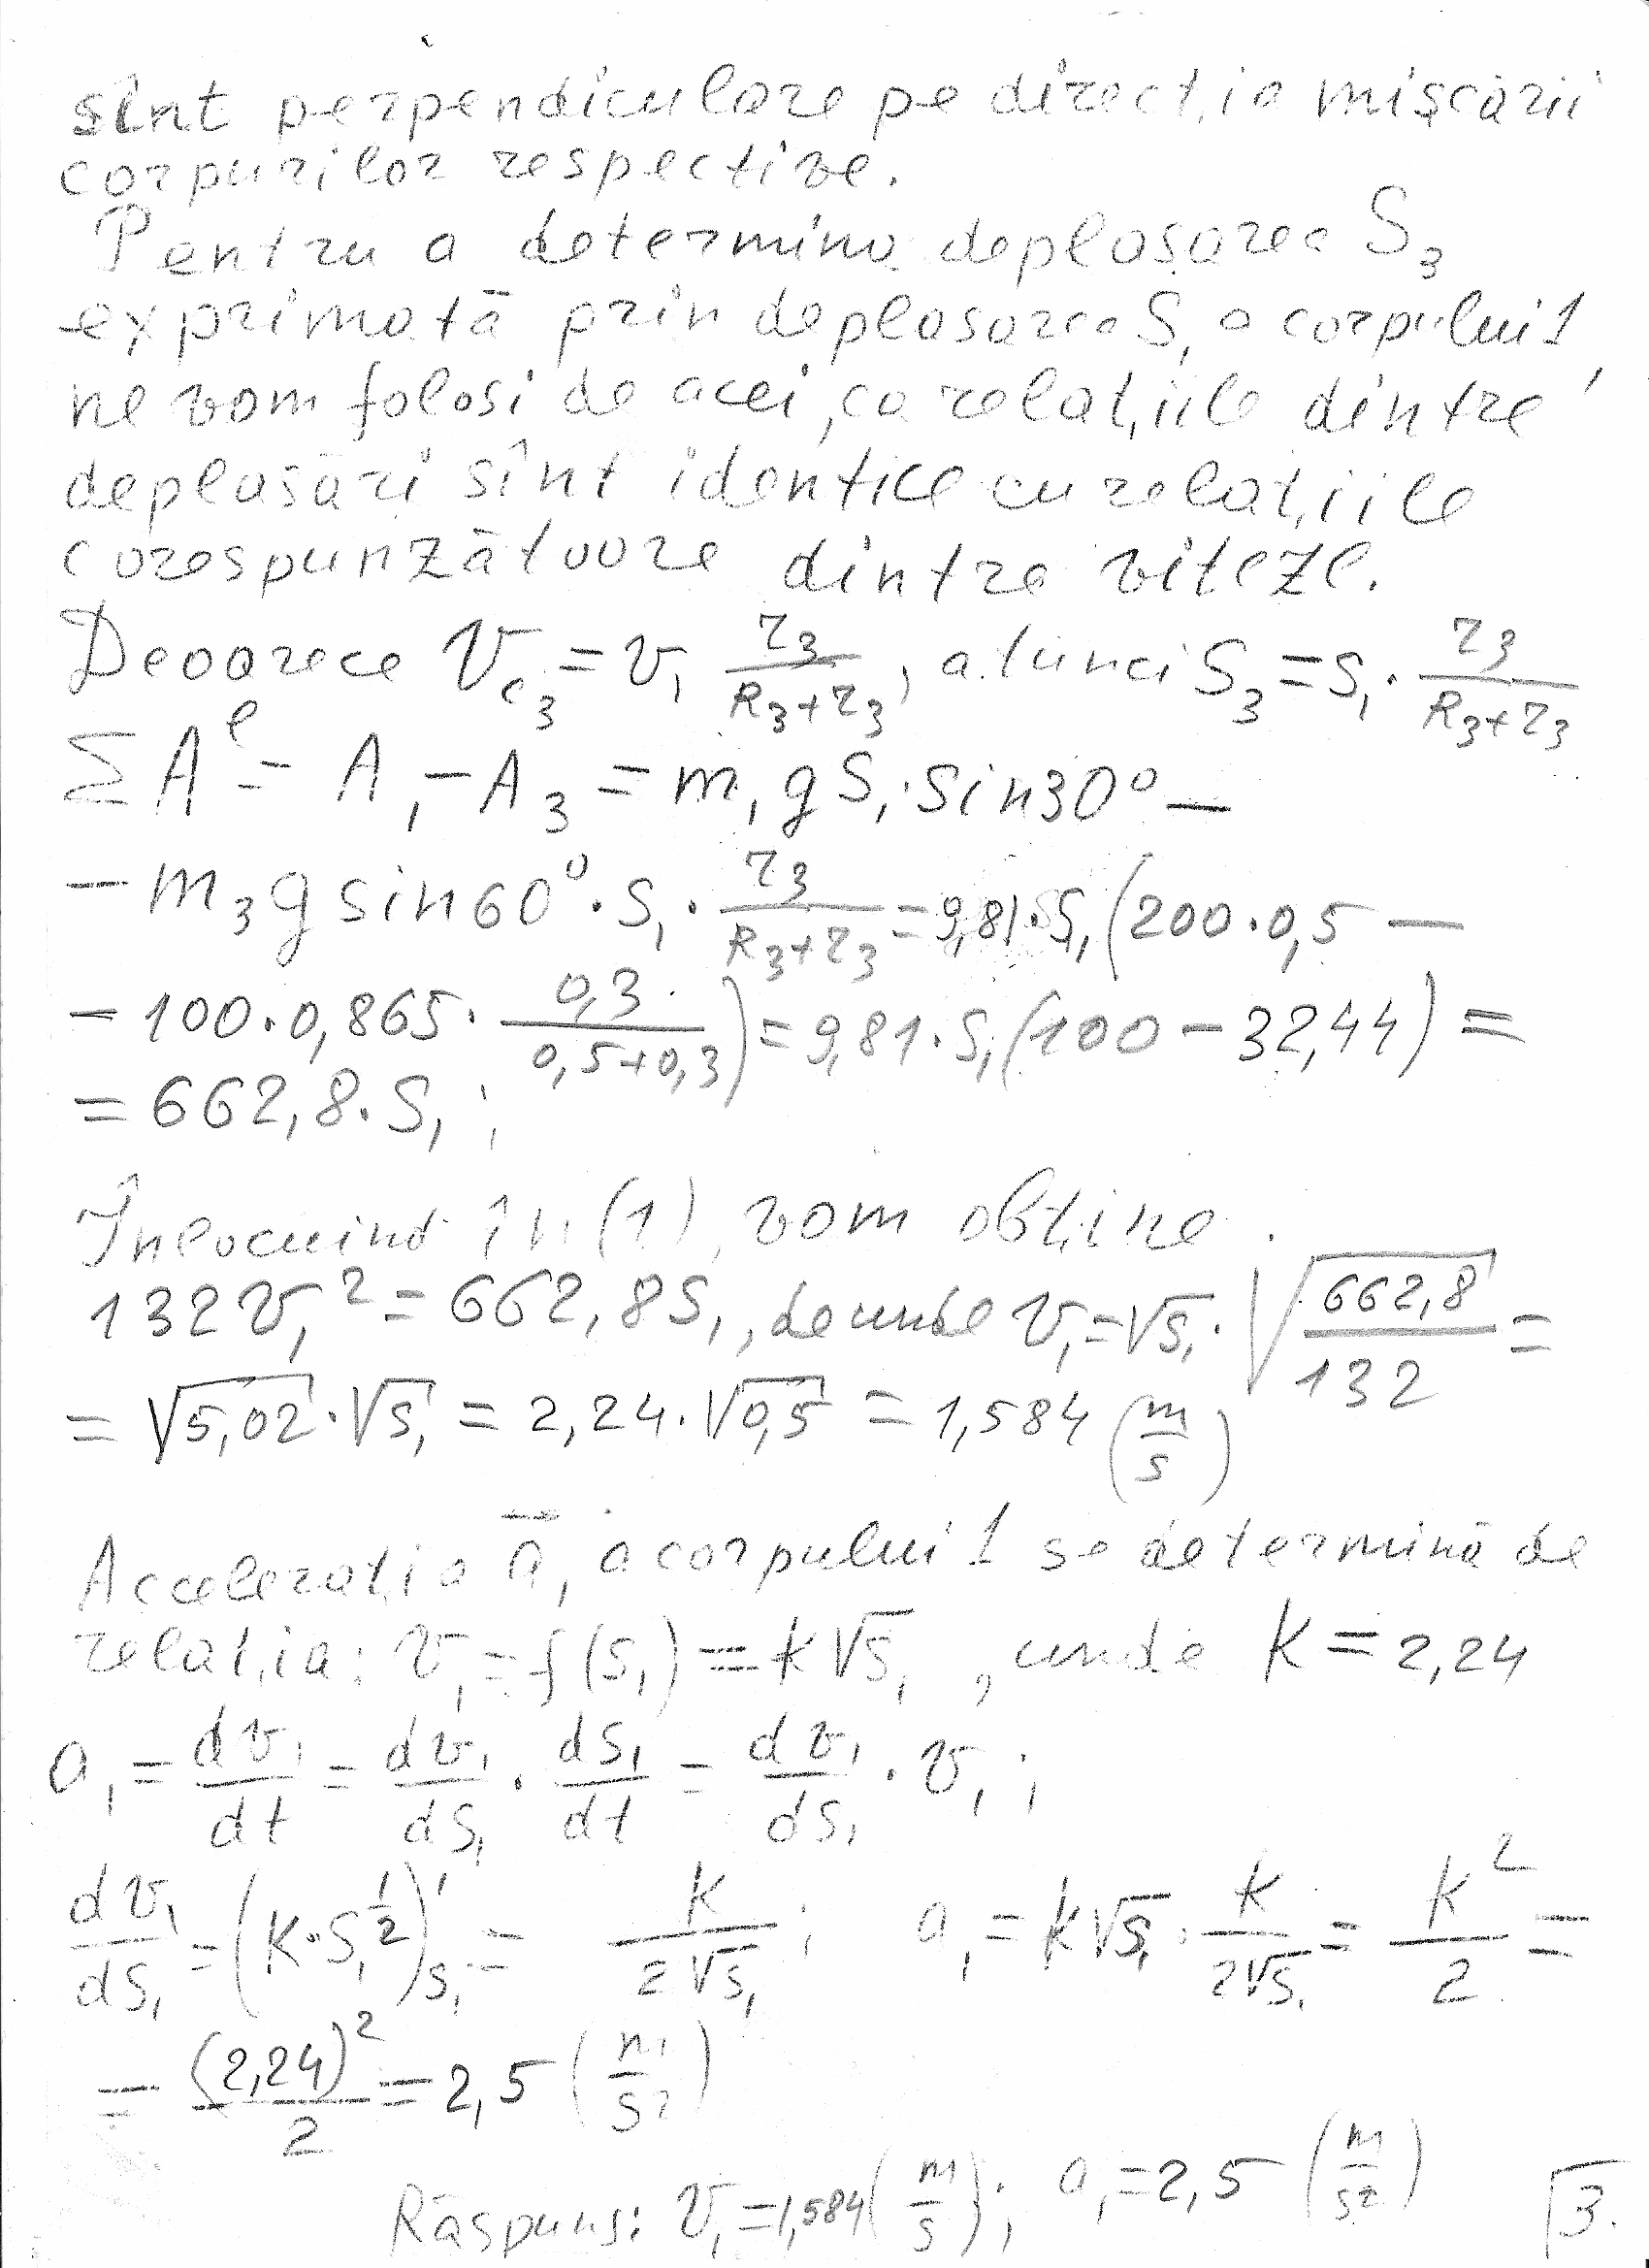 sînt perpendiculare pe direcția mișcării
corpurilor respective.
Pentru a determina deplasarea S₃
exprimată prin deplasarea S₁ a corpului 1,
ne vom folosi de acei, ca relațiile dintre
deplasări sînt identice cu relațiile
corespunzătoare dintre viteze.
Deoarece V_{c₃} = v₁ r₃/(R₃+r₃), atunci S₃ = s₁ · r₃/(R₃+r₃)
ΣAᵉ = A₁ - A₃ = m₁gS₁·sin30° -
- m₃g sin60° · S₁ · r₃/(R₃+r₃) = 9,81·S₁(200·0,5 -
- 100·0,865 · 0,3/(0,5+0,3)) = 9,81·S₁(100 - 32,44) =
= 662,8·S₁;
Înlocuind în (1) vom obține
132 v₁² = 662,8 S₁, de unde v₁ = √s₁ · √(662,8/132) =
= √5,02 · √s₁ = 2,24 · √0,5 = 1,584 (m/s)
Accelerația a⃗₁ a corpului 1 se determină de
relația: v₁ = f(s₁) = k√s₁, unde K = 2,24
a₁ = dv₁/dt = dv₁/ds₁ · ds₁/dt = dv₁/ds₁ · v₁;
dv₁/ds₁ = (K·S₁^{1/2})'_{s₁} = K/(2√s₁); a₁ = k√s₁ · K/(2√s₁) = K²/2 =
= (2,24)²/2 = 2,5 (m/s²)
Răspuns: v₁ = 1,584 (m/s); a₁ = 2,5 (m/s²)
3.